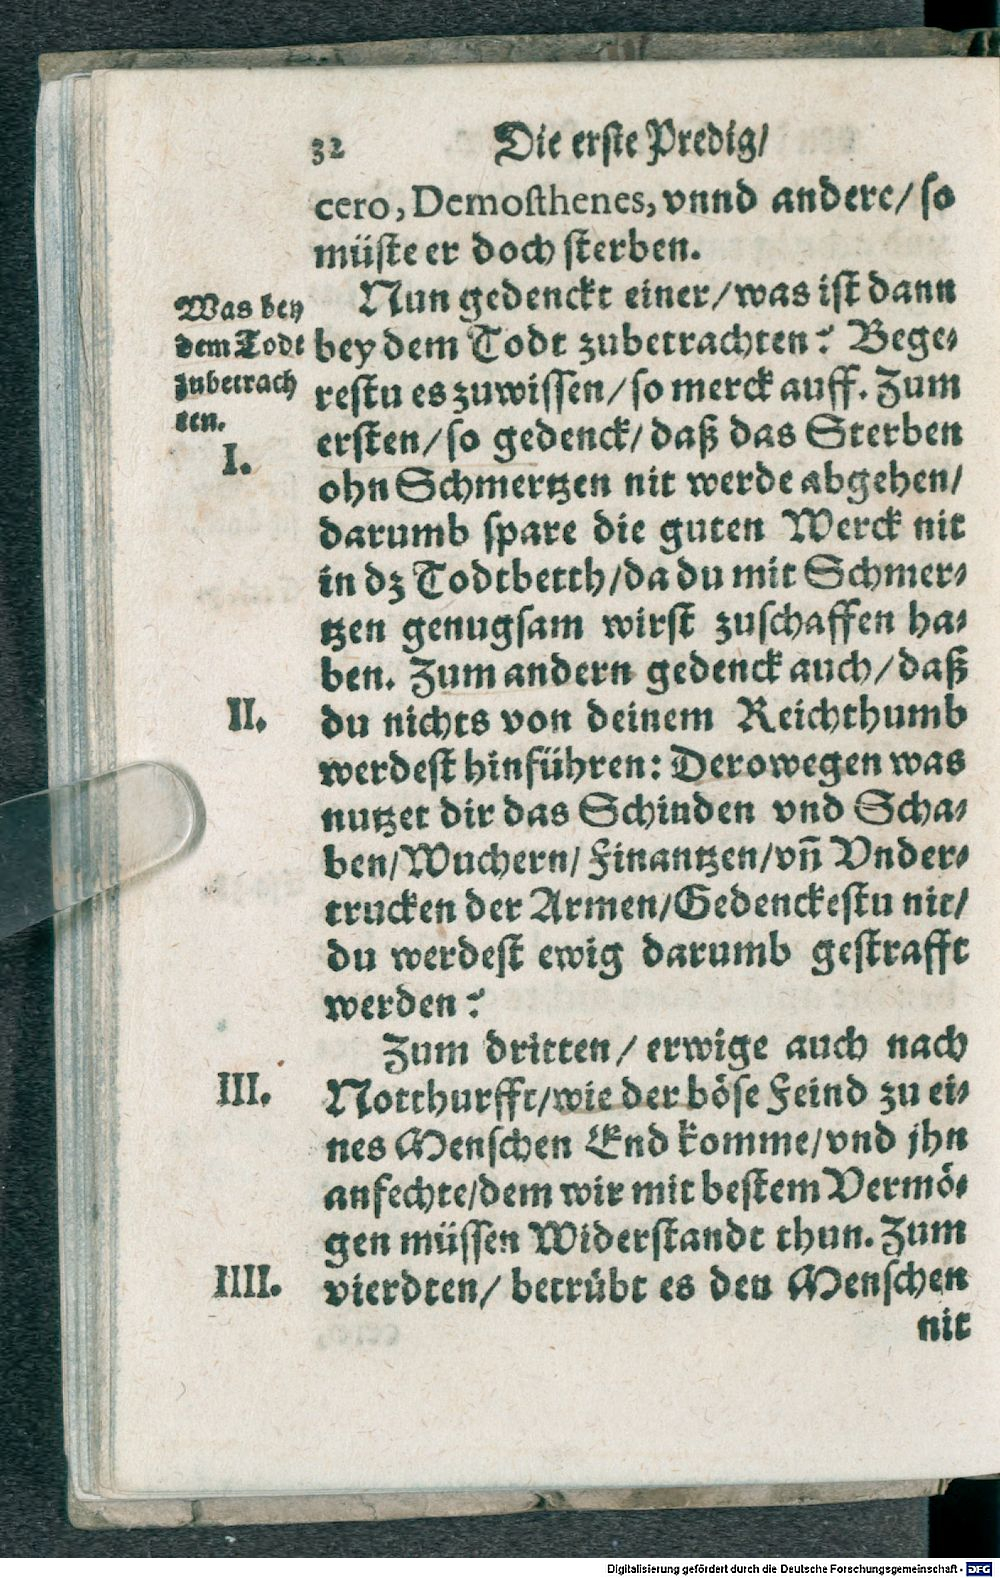 32 Die erste Predig/
cero, Demosthenes, vnnd andere/ so
müste er doch sterben.
Nun gedenckt einer/ was ist dann
bey dem Todt zubetrachten? Bege-
restu es zuwissen/ so merck auff. Zum
ersten/ so gedenck/ daß das Sterben
ohn Schmertzen nit werde abgehen/
darumb spare die guten Werck nit
in dz Todtbetth/ da du mit Schmer-
tzen genugsam wirst zuschaffen ha-
ben. Zum andern gedenck auch/ daß
du nichts von deinem Reichthumb
werdest hinführen: Derowegen was
nutzet dir das Schinden vnd Scha-
ben/ Wuchern/ Finantzen/ vñ Vnder-
trucken der Armen/ Gedenckestu nit/
du werdest ewig darumb gestrafft
werden?
Zum dritten/ erwige auch nach
Notthurfft/ wie der böse Feind zu ei-
nes Menschen End komme/ vnd jhn
anfechte/ dem wir mit bestem Vermö-
gen müssen Widerstandt thun. Zum
vierdten/ betrübt es den Menschen
nit
Was bey
dem Todt
zubetrach
ten.
I.
II.
III.
IIII.
Digitalisierung gefördert durch die Deutsche Forschungsgemeinschaft - DFG